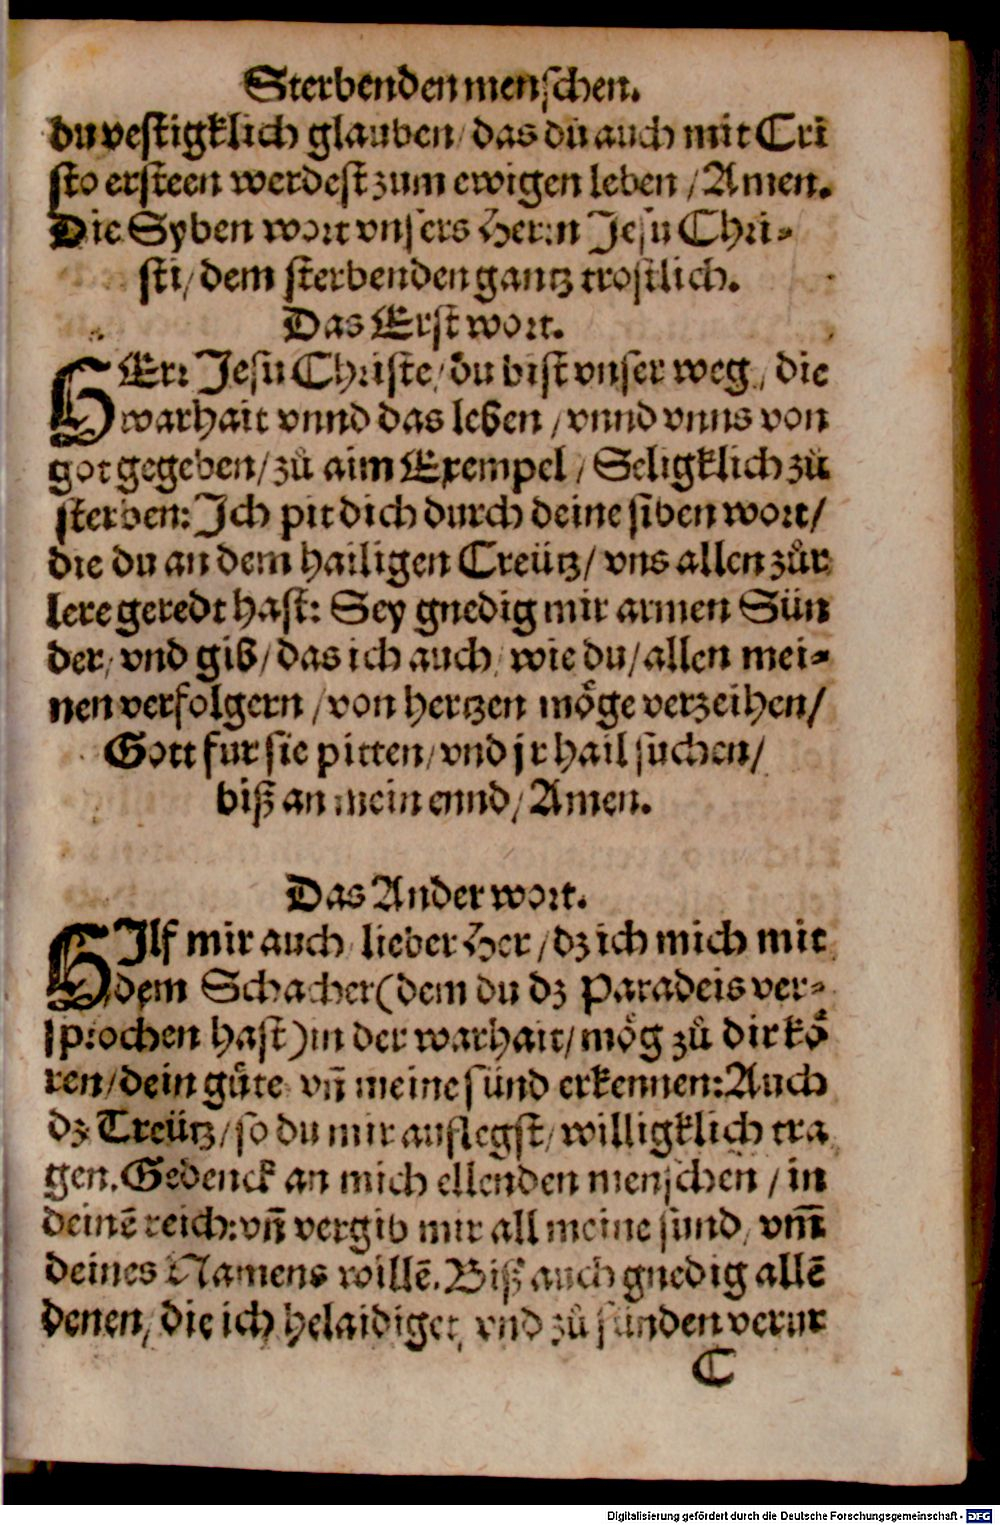 Sterbenden menschen.
du vestigklich glauben / das du auch mit Cri
sto ersteen werdest zum ewigen leben / Amen.
Die Syben wort vnsers Herrn Jesu Chri-
sti / dem sterbenden gantz trostlich.
Das Erst wort.
HErr Jesu Christe / du bist vnser weg / die
warhait vnnd das leben / vnnd vnns von
got gegeben / zů aim Exempel / Seligklich zů
sterben: Jch pit dich durch deine siben wort /
die du an dem hailigen Creütz / vns allen zůr
lere geredt hast: Sey gnedig mir armen Sün
der / vnd gib / das ich auch / wie du / allen mei-
nen verfolgern / von hertzen möge verzeihen /
Gott fur sie pitten / vnd jr hail suchen /
biß an mein ennd / Amen.
Das Ander wort.
HJlf mir auch lieber Her / dz ich mich mit
dem Schacher (dem du dz Paradeis ver-
sprochen hast) in der warhait / mög zů dir kö
ren / dein gůte vñ meine sünd erkennen: Auch
dz Creütz / so du mir auflegst / willigklich tra
gen. Gedenck an mich ellenden menschen / in
deinē reich: vñ vergib mir all meine sund / vm̄
deines Namens willē. Biß auch gnedig allē
denen / die ich belaidiget / vnd zů sünden verur
C
Digitalisierung gefördert durch die Deutsche Forschungsgemeinschaft - DFG